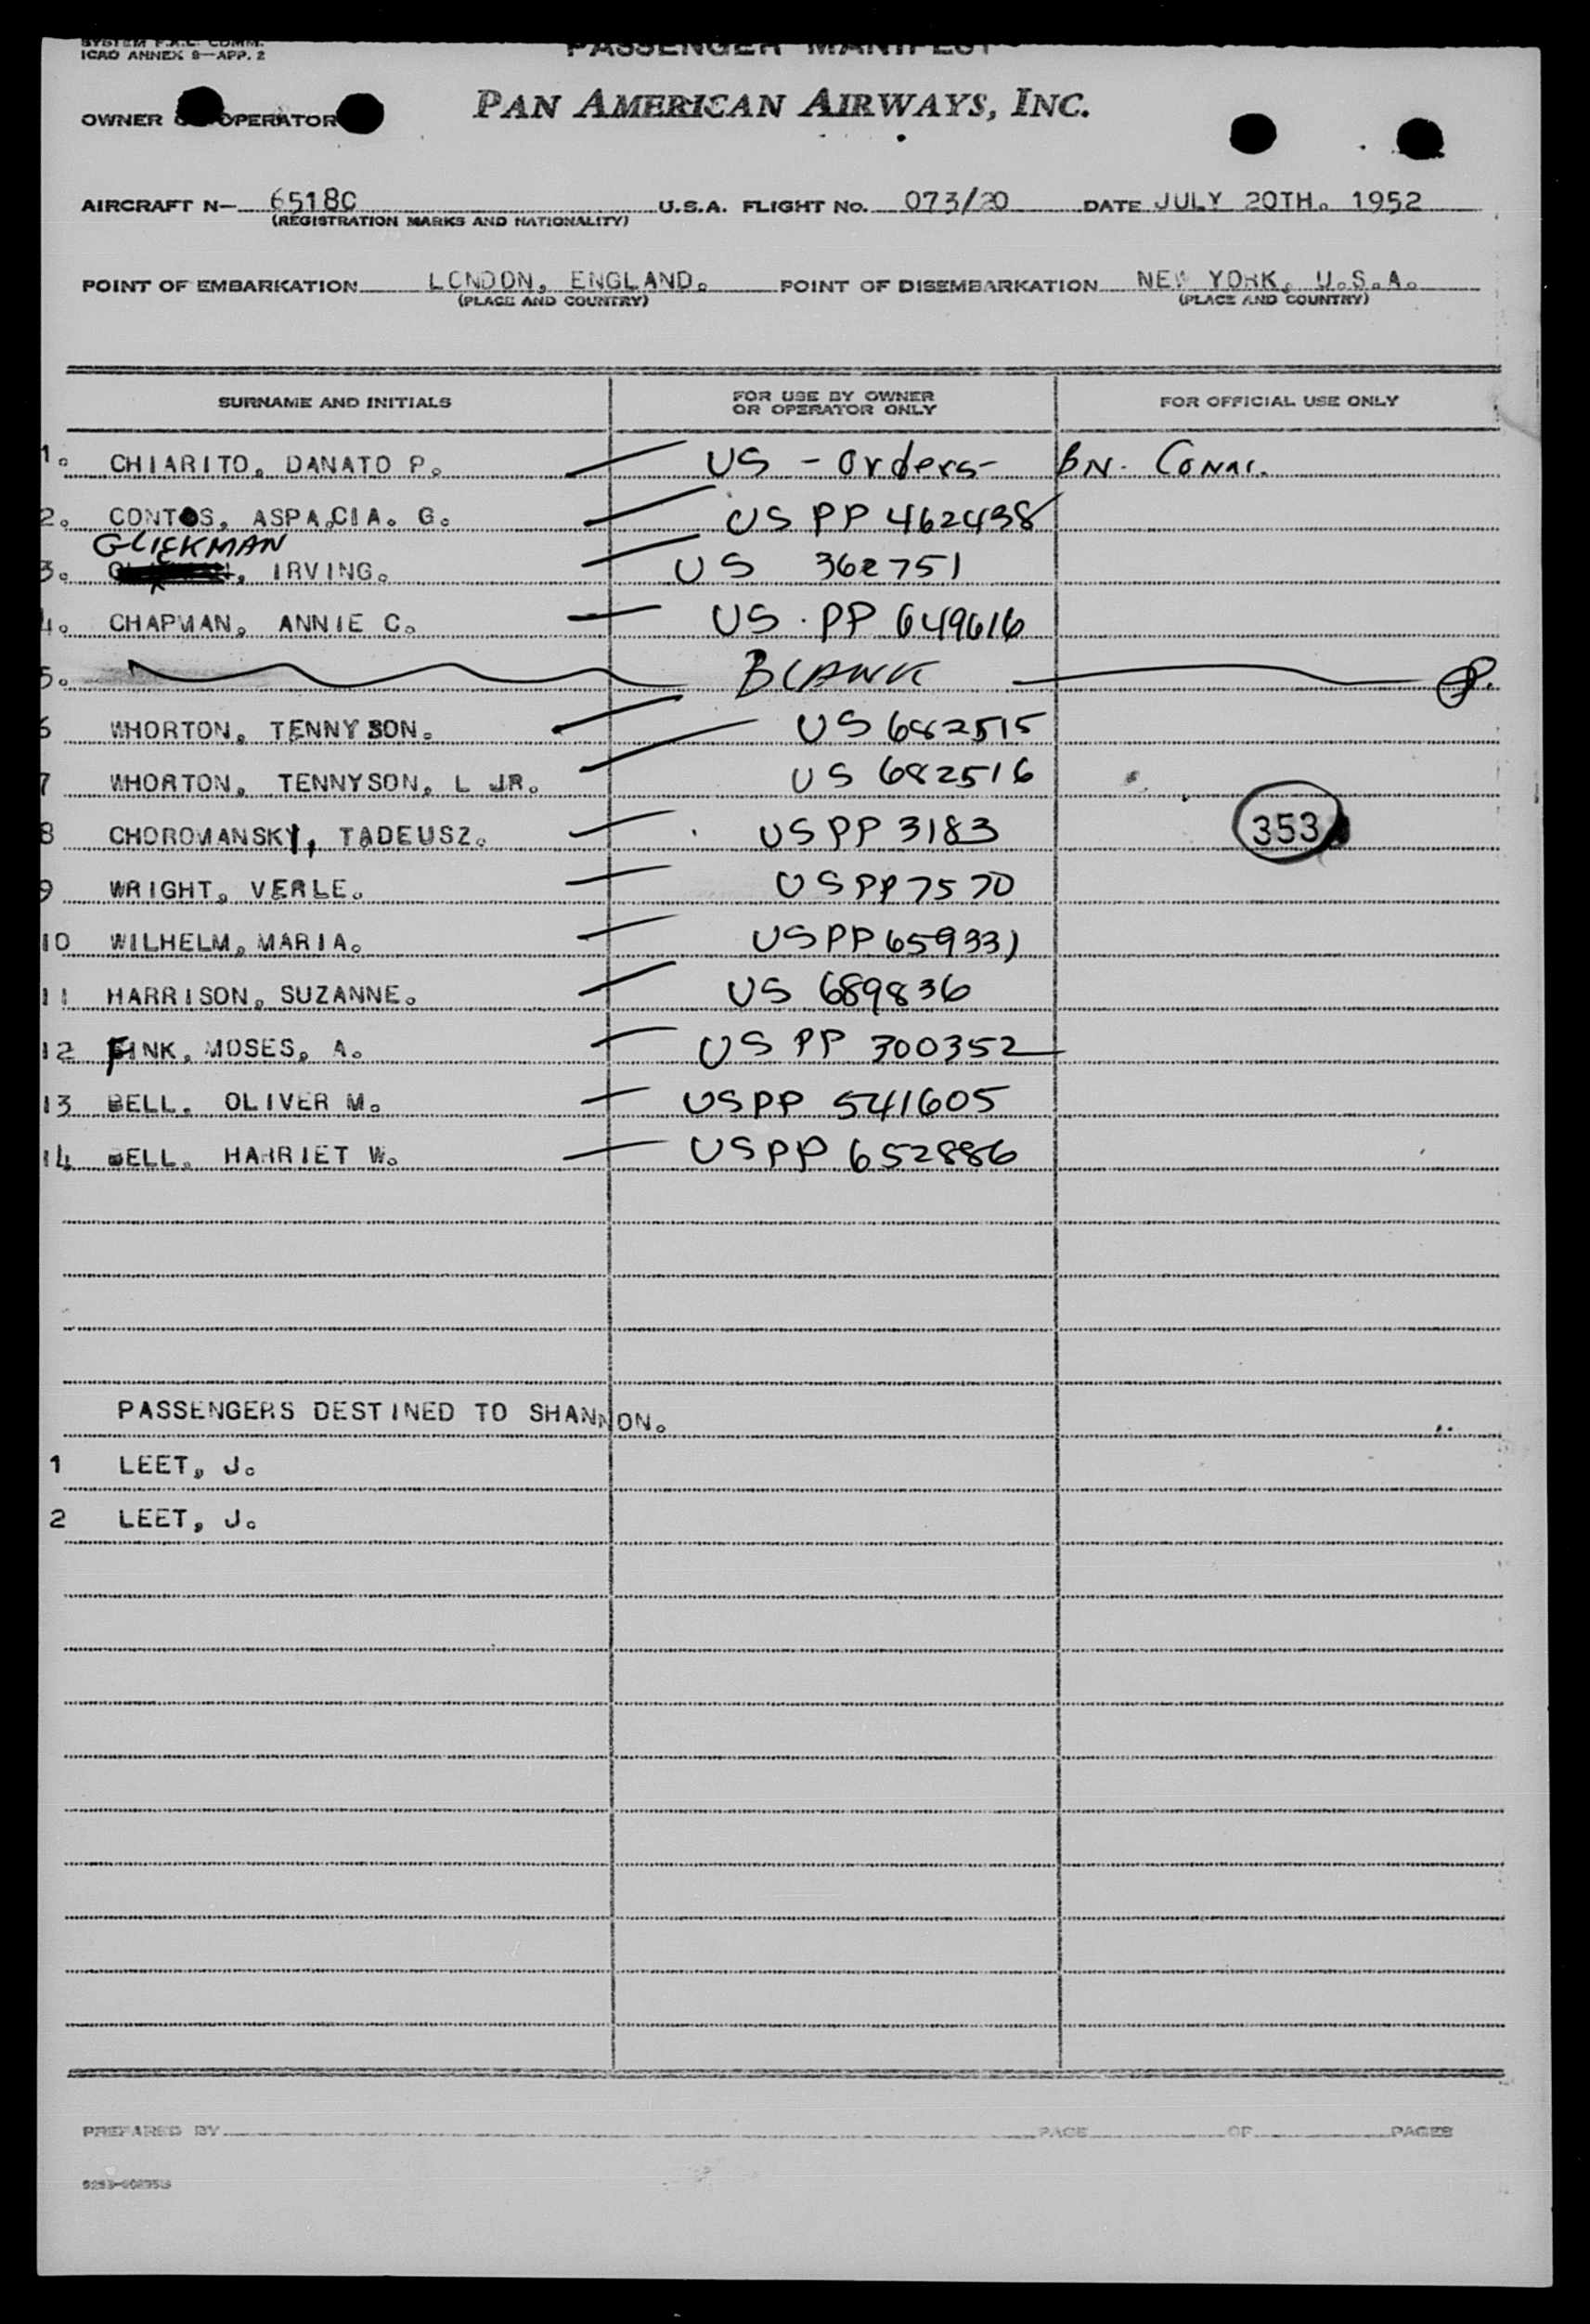 SYSTEM F.A.C. COMM.
ICAO ANNEX 9—APP. 2
PASSENGER MANIFEST
OWNER OPERATOR PAN AMERICAN AIRWAYS, INC.
AIRCRAFT N— 6518C U.S.A. FLIGHT No. 073/20 DATE JULY 20TH. 1952
(REGISTRATION MARKS AND NATIONALITY)
POINT OF EMBARKATION LONDON, ENGLAND. POINT OF DISEMBARKATION NEW YORK, U.S.A.
(PLACE AND COUNTRY) (PLACE AND COUNTRY)
SURNAME AND INITIALS FOR USE BY OWNER OR OPERATOR ONLY FOR OFFICIAL USE ONLY
1. CHIARITO, DANATO P. US - Orders - BN. CONAC.
2. CONTOS, ASPA,CIA. G. US PP 462438
GLICKMAN
3. IRVING. US 362751
4. CHAPMAN, ANNIE C. US. PP 649616
5. BLANK
6 WHORTON, TENNYSON. US 682515
7 WHORTON, TENNYSON, L JR. US 682516
8 CHOROMANSKY, TADEUSZ. US PP 3183 353
9 WRIGHT, VERLE. US PP 7570
10 WILHELM, MARIA. US PP 659331
11 HARRISON, SUZANNE. US 689836
12 FINK, MOSES, A. US PP 300352
13 BELL, OLIVER M. US PP 541605
14 BELL, HARRIET W. US PP 652886
PASSENGERS DESTINED TO SHANNON.
1 LEET, J.
2 LEET, J.
PREPARED BY PAGE OF PAGES